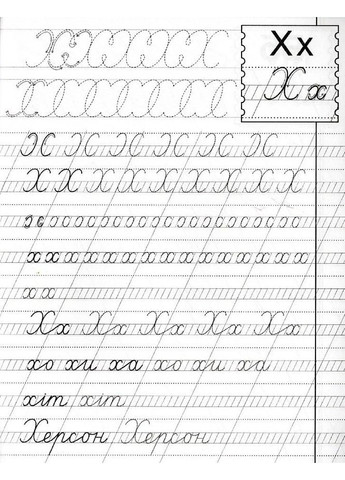 Х х
Х х
Х Х Х Х Х Х Х Х Х
х х х х х х х х х х х х х х х х
х х
Хх Хх Хх Хх Хх
хо хи ха хо хи ха
хіт хіт
Херсон Херсон